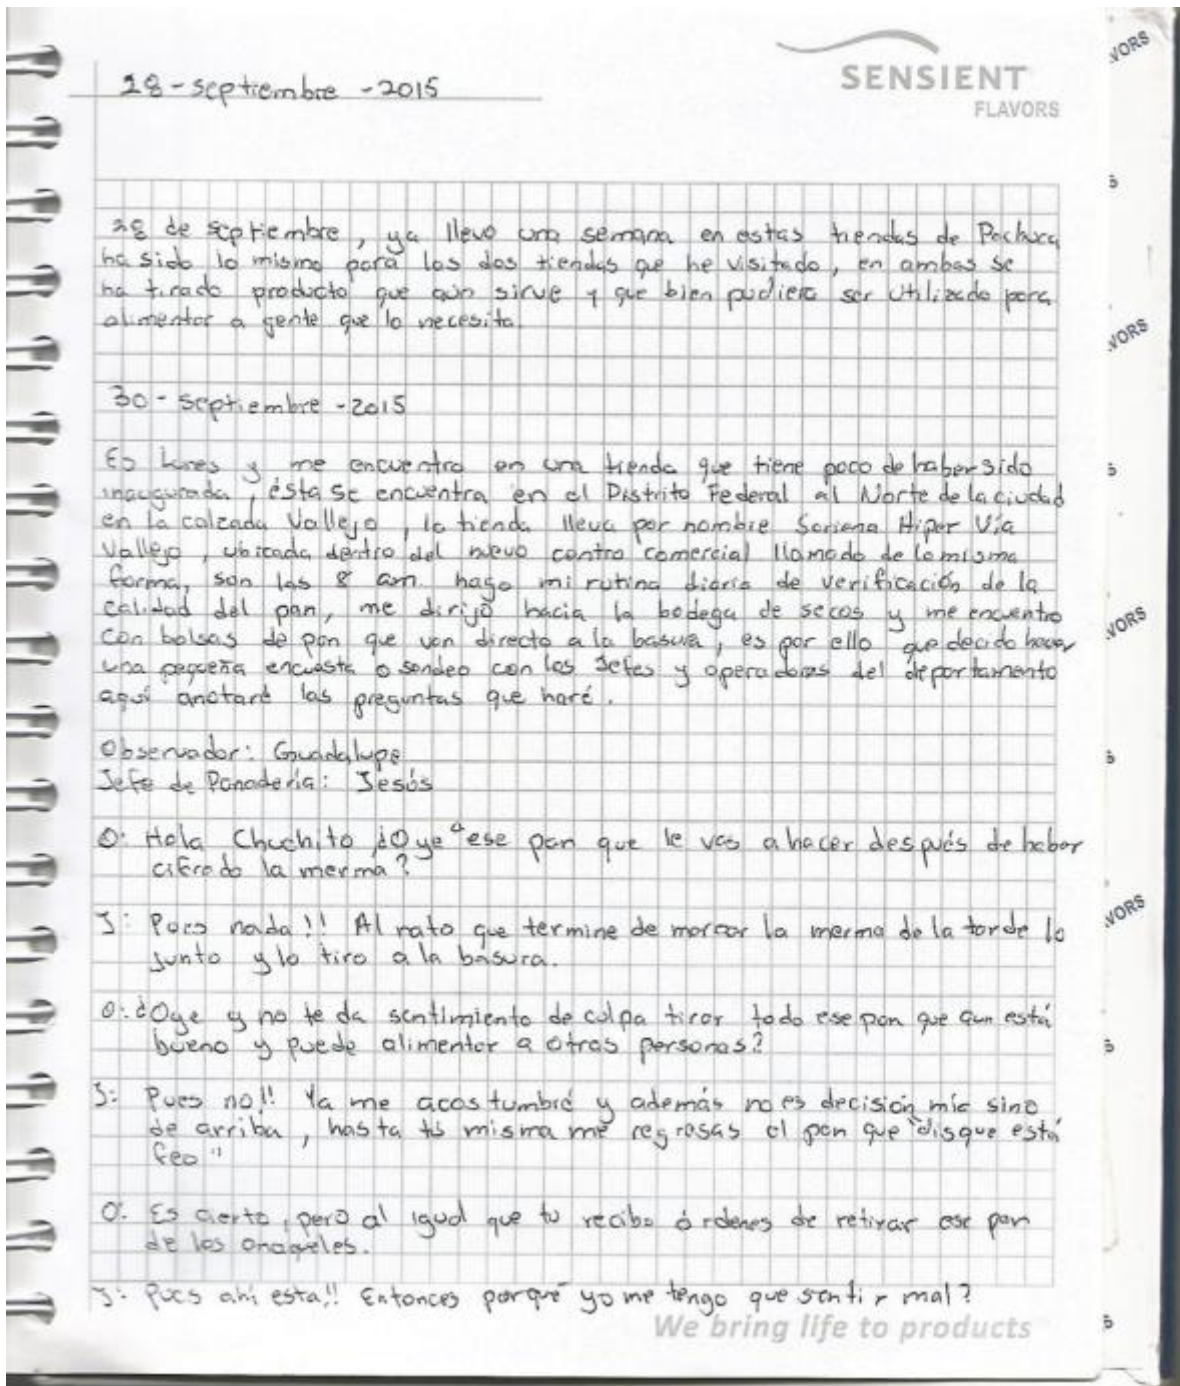 28-septiembre -2015
SENSIENT
FLAVORS
28 de septiembre, ya llevo una semana en estas tiendas de Pachuca
ha sido lo mismo para las dos tiendas que he visitado, en ambas se
ha tirado producto que aún sirve y que bien pudiera ser utilizado para
alimentar a gente que lo necesita.
30-septiembre-2015
Es lunes y me encuentro en una tienda que tiene poco de haber sido
inaugurada, ésta se encuentra en el Distrito Federal al Norte de la ciudad
en la calzada Vallejo, la tienda lleva por nombre Soriana Hiper Vía
Vallejo, ubicada dentro del nuevo centro comercial llamado de la misma
forma, son las 8 am. hago mi rutina diaria de verificación de la
calidad del pan, me dirijo hacia la bodega de secos y me encuentro
con bolsas de pan que van directo a la basura, es por ello que decido hacer
una pequeña encuesta o sondeo con los Jefes y operadores del departamento
aquí anotaré las preguntas que haré.
Observador: Guadalupe
Jefe de Panadería: Jesús
O: Hola Chuchito ¿Oye ese pan que le vas a hacer después de haber
cifrado la merma?
J: Pues nada!! Al rato que termine de marcar la merma de la tarde lo
junto y lo tiro a la basura.
O: ¿Oye y no te da sentimiento de culpa tirar todo ese pan que aun está
bueno y puede alimentar a otras personas?
J: Pues no!! Ya me acostumbré y además no es decisión mía sino
de arriba, hasta tú misma me regresas el pan que "disque está
feo"
O: Es cierto, pero al igual que tu recibo órdenes de retirar ese pan
de los anaqueles.
J: Pues ahí esta!! Entonces porqué yo me tengo que sentir mal?
We bring life to products
VORS
VORS
VORS
VORS